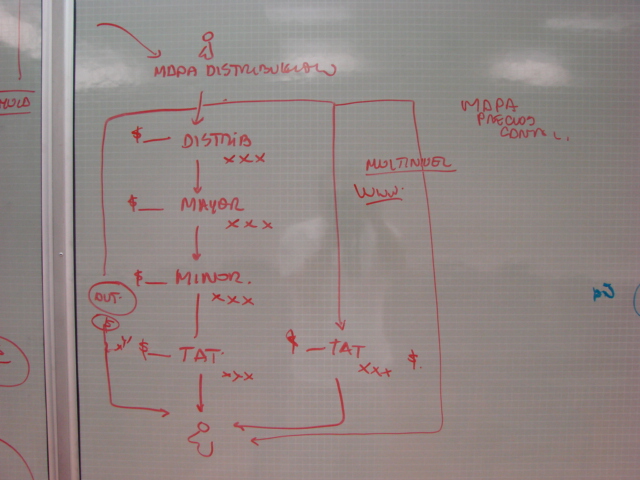 MAPA DISTRIBUCION
MAPA
PRECIOS
$ DISTRIB
XXX
MULTINIVEL
WWW.
$ MAYOR
XXX
$ MINOR.
XXX
OUT.
$ TAT.
XXX
$ TAT
XXX $.